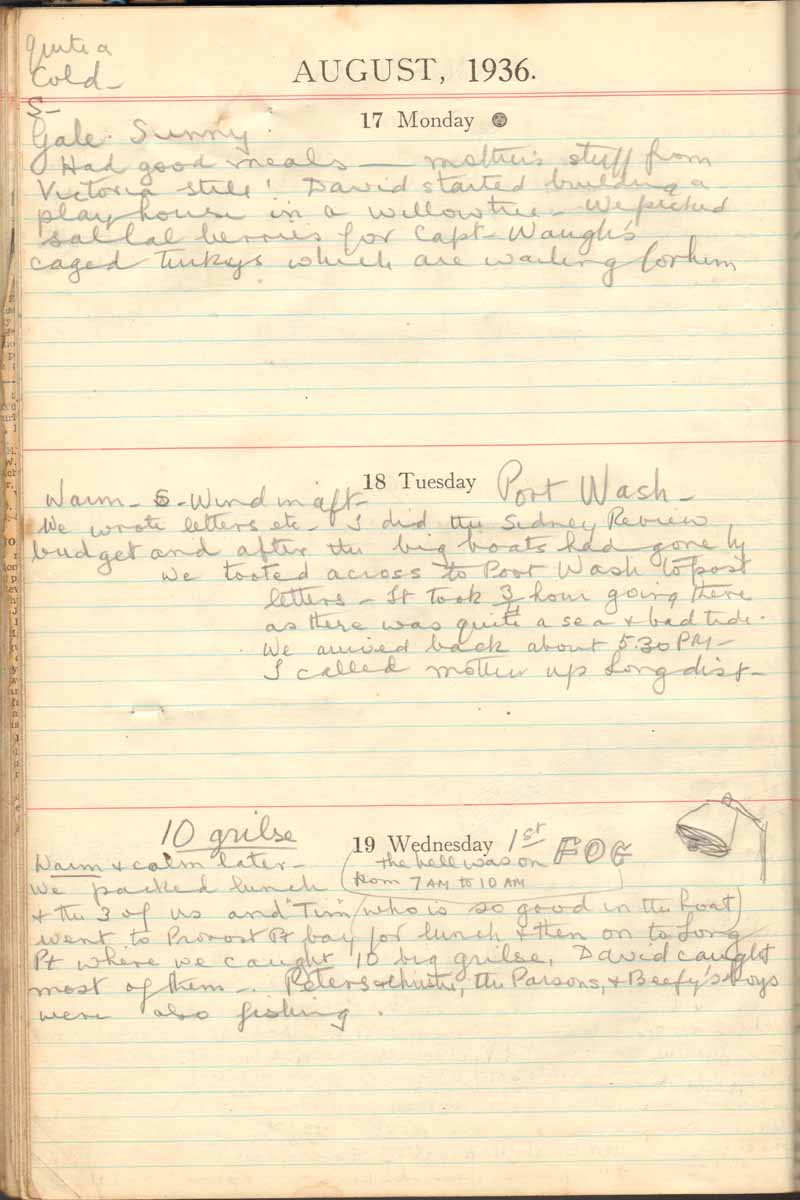 quite a
Cold -
AUGUST, 1936.
S -
Gale. Sunny.
17 Monday
Had good meals — mother's stuff from
Victoria still! David started building a
play house in a willow tree - We picked
sallal berries for Capt - Waugh's
caged Turkys which are waiting for him
18 Tuesday
Port Wash -
Warm - S - Wind in aft -
We wrote letters etc - I did the Sidney Review
budget and after the big boats had gone by
we tooted across to Port Wash to post
letters - It took 3/4 hour going there
as there was quite a sea & bad tide.
We arrived back about 5.30 PM -
I called mother up Long dist -
10 grilse
19 Wednesday
1st FOG
Warm & calm later -
(the bell was on
from 7 AM to 10 AM
We packed lunch
& the 3 of us and "Tim" (who is so good in the boat)
went to Provost Pt bay for lunch & then on to Long
Pt where we caught 10 big grilse, David caught
most of them - . Peters & Christie, the Parsons, & Beefy's boys
were also fishing .